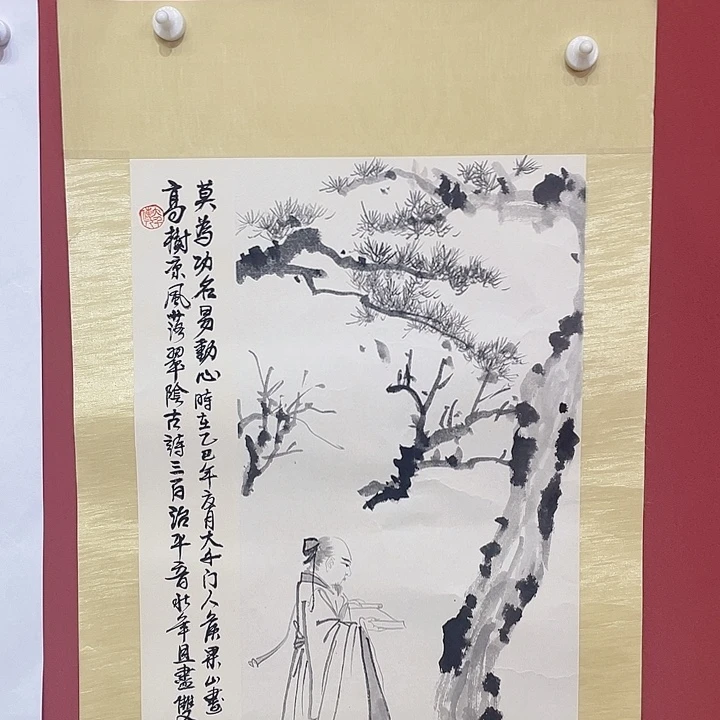 高樹凉風落翠陰古詩三百治平音年且盡雙
莫為功名易動心時在乙巳年夏月大千门人侯山畫